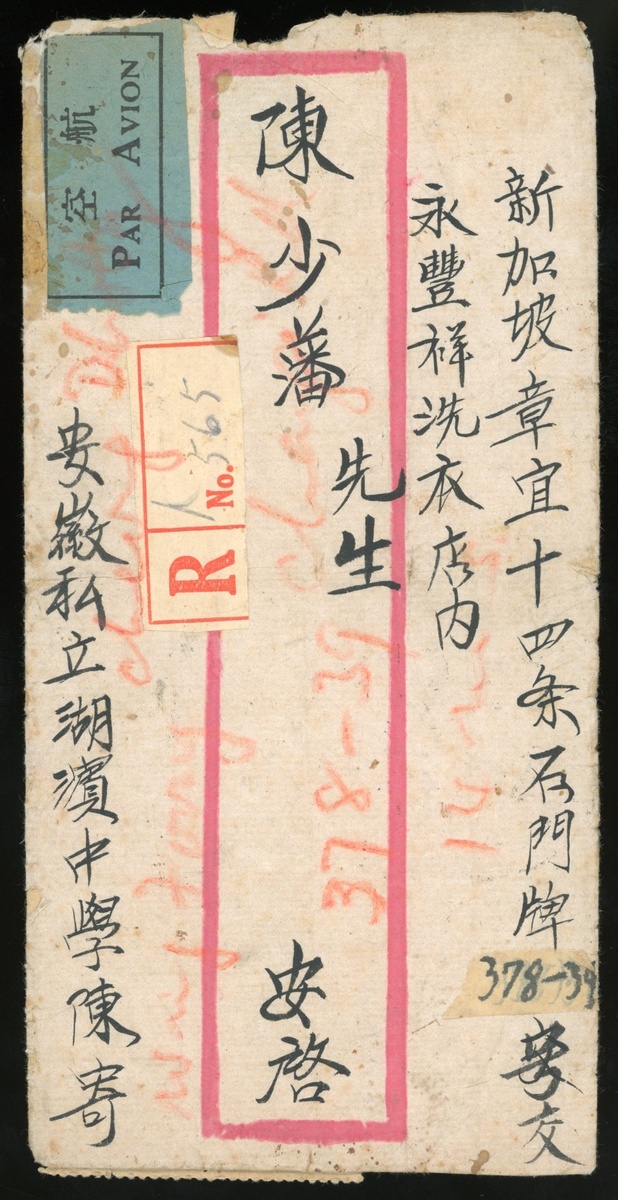 新加坡章宜十四条石門牌
378-39
交
永豐祥洗衣店内
陳少藩
先生
安啓
安徽私立湖濱中學陳寄
航空
PAR AVION
R
No. 565
378-39